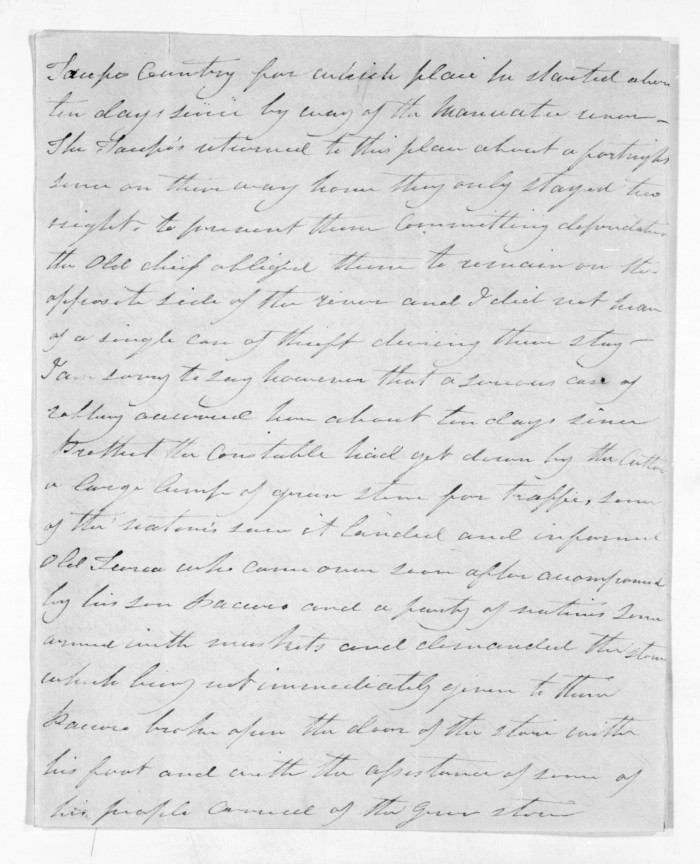 Taupo Country for which place he started about
ten days since by way of the Manuatu river —
The Taupo's returned to this place about a fortnight
since on their way home they only stayed two
nights to prevent them Committing depredations
the Old chief obliged them to remain on the
opposite side of the river and I did not hear
of a single case of theft during their stay —
I am sorry to say however that a serious case of
robbery occurred here about ten days since
the Constable had get down by the Cutter
a large lump of green stone for traffic, some
of the natives saw it landed and informed
Old who came over soon after accompanied
by his son and a party of natives some
armed with muskets and demanded the stone
which being not immediately given to them
broke open the door of the store with
his foot and with the assistance of some of
his people carried of the green stone